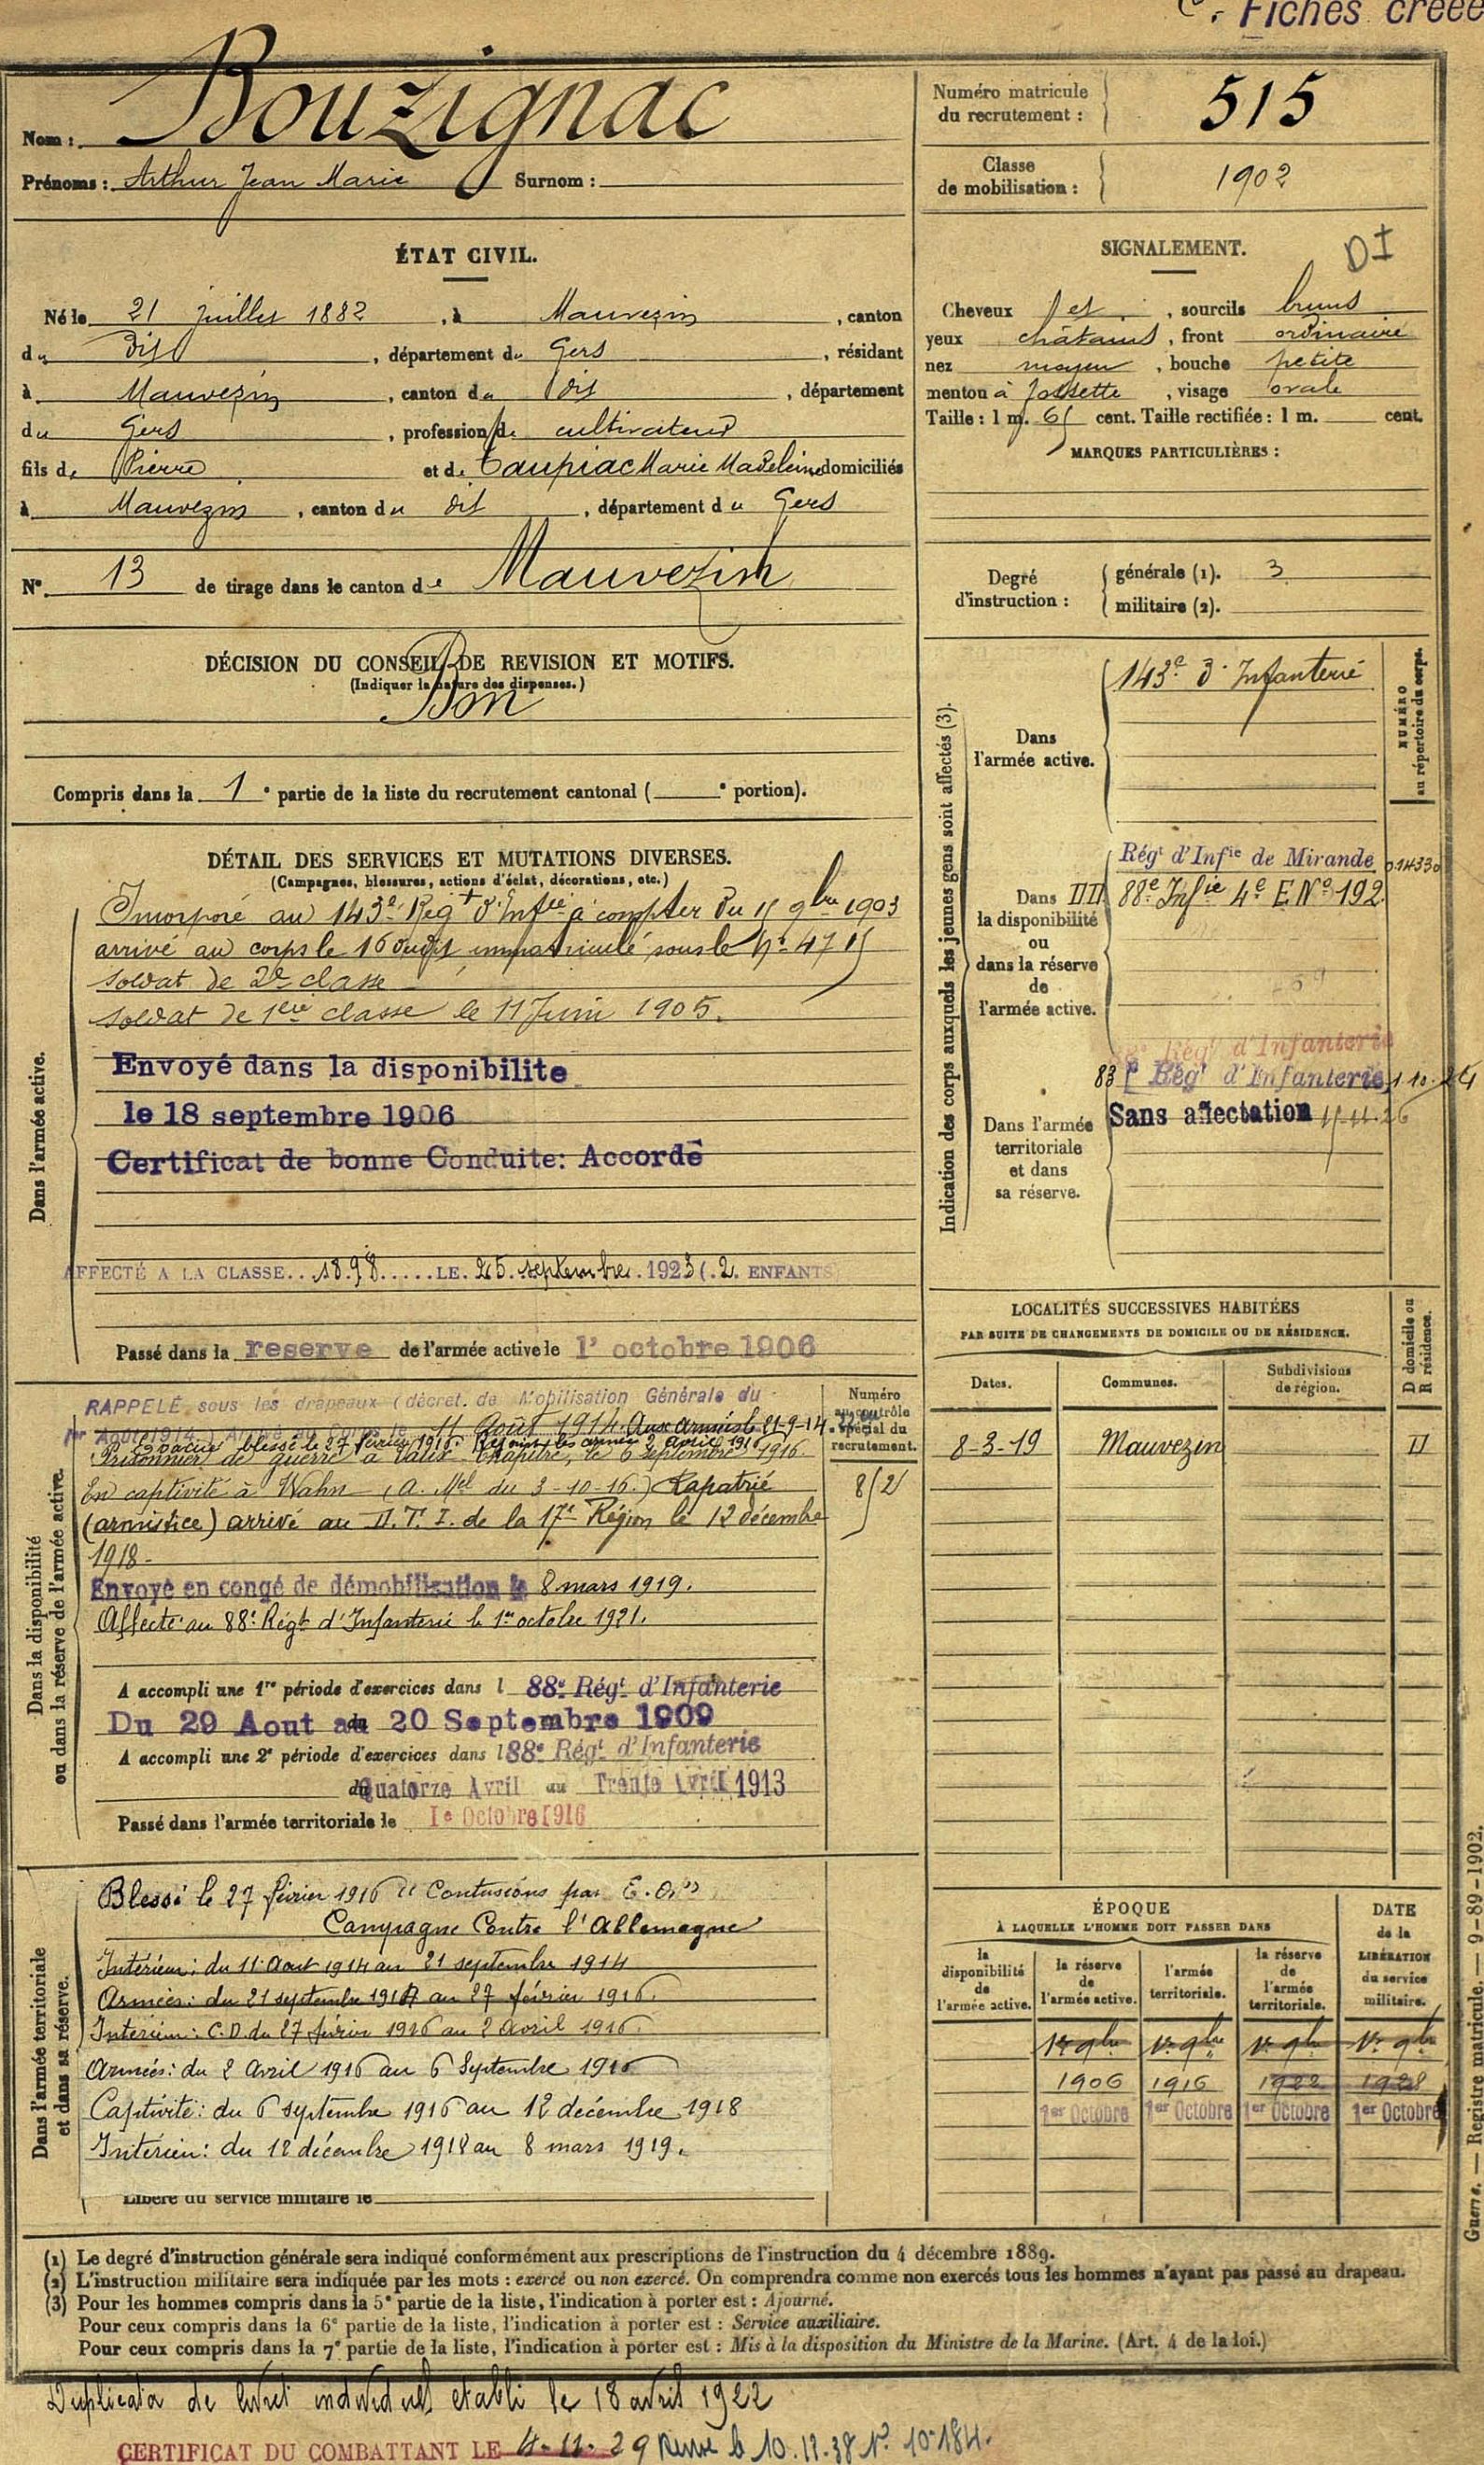 Fiches créée
Nom : Bouzignac
Prénoms : Arthur Jean Marie Surnom :
Numéro matricule du recrutement : 515
Classe de mobilisation : 1902
ÉTAT CIVIL.
Né le 21 juillet 1882, à Mauvezin, canton
du dit, département du Gers, résidant
à Mauvezin, canton du dit, département
du Gers, profession de cultivateur
fils de Pierre et de Taupiac Marie Madeleine domiciliés
à Mauvezin, canton du dit, département du Gers
N° 13 de tirage dans le canton de Mauvezin
SIGNALEMENT.
DI
Cheveux et, sourcils bruns
yeux châtains, front ordinaire
nez moyen, bouche petite
menton à fossette, visage ovale
Taille : 1 m. 65 cent. Taille rectifiée : 1 m. cent.
MARQUES PARTICULIÈRES :
Degré d'instruction :
générale (1). 3
militaire (2).
DÉCISION DU CONSEIL DE REVISION ET MOTIFS.
(Indiquer la nature des dispenses.)
Bon
Compris dans la 1e partie de la liste du recrutement cantonal ( e portion).
DÉTAIL DES SERVICES ET MUTATIONS DIVERSES.
(Campagnes, blessures, actions d'éclat, décorations, etc.)
Dans l'armée active.
Incorporé au 143e Régt d'Inftie à compter du 15 9bre 1903
arrivé au corps le 16 dudit immatriculé sous le N° 4715
soldat de 2e classe
soldat de 1ère classe le 11 Juin 1905.
Envoyé dans la disponibilite
le 18 septembre 1906
Certificat de bonne Conduite: Accordé
AFFECTÉ A LA CLASSE...1898.....LE.25.septembre.1923 (.2. ENFANTS
Passé dans la reserve de l'armée active le 1er octobre 1906
Indication des corps auxquels les jeunes gens sont affectés (3).
NUMÉRO au répertoire du corps.
Dans l'armée active.
143e d'Infanterie
Dans la disponibilité ou dans la réserve de l'armée active.
Régt d'Infie de Mirande 014330
88e Infie 4e E N° 192
Dans l'armée territoriale et dans sa réserve.
Régt d'Infanterie
83 Régt d'Infanterie 1.10.24
Sans affectation 15-11-26
LOCALITÉS SUCCESSIVES HABITÉES
PAR SUITE DE CHANGEMENTS DE DOMICILE OU DE RÉSIDENCE.
D domicile ou R résidence.
Dates. Communes. Subdivisions de région.
8-3-19 Mauvezin D
Dans la disponibilité ou dans la réserve de l'armée active.
Numéro au contrôle spécial du recrutement.
852
RAPPELÉ sous les drapeaux (décret de Mobilisation Générale du
1er Août 1914) Arrivé au Corps le 11 Août 1914. Aux armées le 21-9-14
Evacué blessé le 27 février 1916. Rejoint les armées 2 avril 1916
Prisonnier de guerre à Vaux Chapitre, le 6 septembre 1916
En captivité à Wahn (A. Mel du 3-10-16.) Rapatrié
(armistice) arrivé au D.T.I. de la 17e Région le 12 décembre
1918-
Envoyé en congé de démobilisation le 8 mars 1919.
Affecté au 88e Régt d'Infanterie le 1er octobre 1921.
A accompli une 1re période d'exercices dans l 88e Régt d'Infanterie
Du 29 Aout au 20 Septembre 1909
A accompli une 2e période d'exercices dans l 88e Régt d'Infanterie
du Quatorze Avril au Trente Avril 1913
Passé dans l'armée territoriale le 1e Octobre 1916
Dans l'armée territoriale et dans sa réserve.
Blessé le 27 février 1916 "Contusions par E. O."
Campagne Contre l'Allemagne
Intérieur : du 11 Aout 1914 au 21 septembre 1914
Armées : du 21 septembre 1914 au 27 février 1916.
Intérieur : C.D. du 27 février 1916 au 2 Avril 1916.
Armées : du 2 Avril 1916 au 6 Septembre 1916
Captivité : du 6 septembre 1916 au 12 décembre 1918
Intérieur : du 12 décembre 1918 au 8 mars 1919.
Libéré du service militaire le
ÉPOQUE
À LAQUELLE L'HOMME DOIT PASSER DANS
DATE de la LIBÉRATION du service militaire.
la disponibilité de l'armée active. la réserve de l'armée active. l'armée territoriale. la réserve de l'armée territoriale.
1er 9bre 1er 9bre 1er 9bre 1er 9bre
1906 1916 1922 1928
1er Octobre 1er Octobre 1er Octobre 1er Octobre
Guerre. — Registre matricule. — 9-89-1902.
(1) Le degré d'instruction générale sera indiqué conformément aux prescriptions de l'instruction du 4 décembre 1889.
(2) L'instruction militaire sera indiquée par les mots : exercé ou non exercé. On comprendra comme non exercés tous les hommes n'ayant pas passé au drapeau.
(3) Pour les hommes compris dans la 5e partie de la liste, l'indication à porter est : Ajourné.
Pour ceux compris dans la 6e partie de la liste, l'indication à porter est : Service auxiliaire.
Pour ceux compris dans la 7e partie de la liste, l'indication à porter est : Mis à la disposition du Ministre de la Marine. (Art. 4 de la loi.)
Duplicata de livret individuel établi le 18 avril 1922
CERTIFICAT DU COMBATTANT LE 4-11-29 Renouv le 10.12.38 N° 10-184.